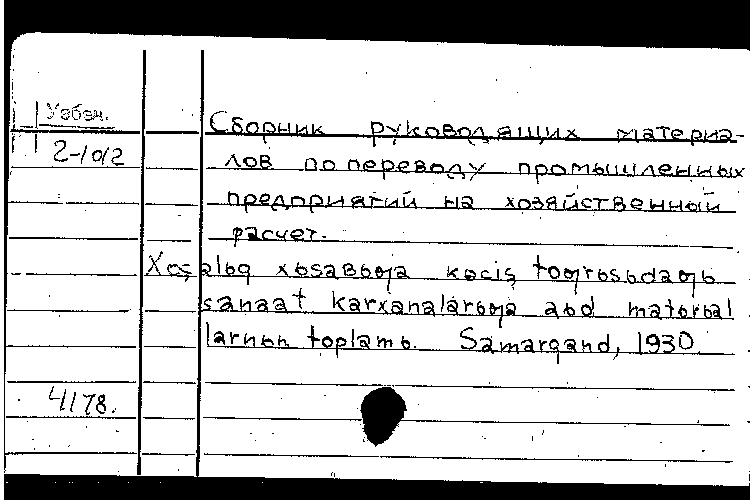 Узбек.
2-1012
Сборник руководящих материа-
лов по переводу промышленных
предприятий на хозяйственный
расчет.
Xoçalьq xьsaвьƣa kəciş toƣrьsьdaƣь
sanaat karxanalarьƣa aьd materьal
larnьn toplamь. Samarqand, 1930
4178.